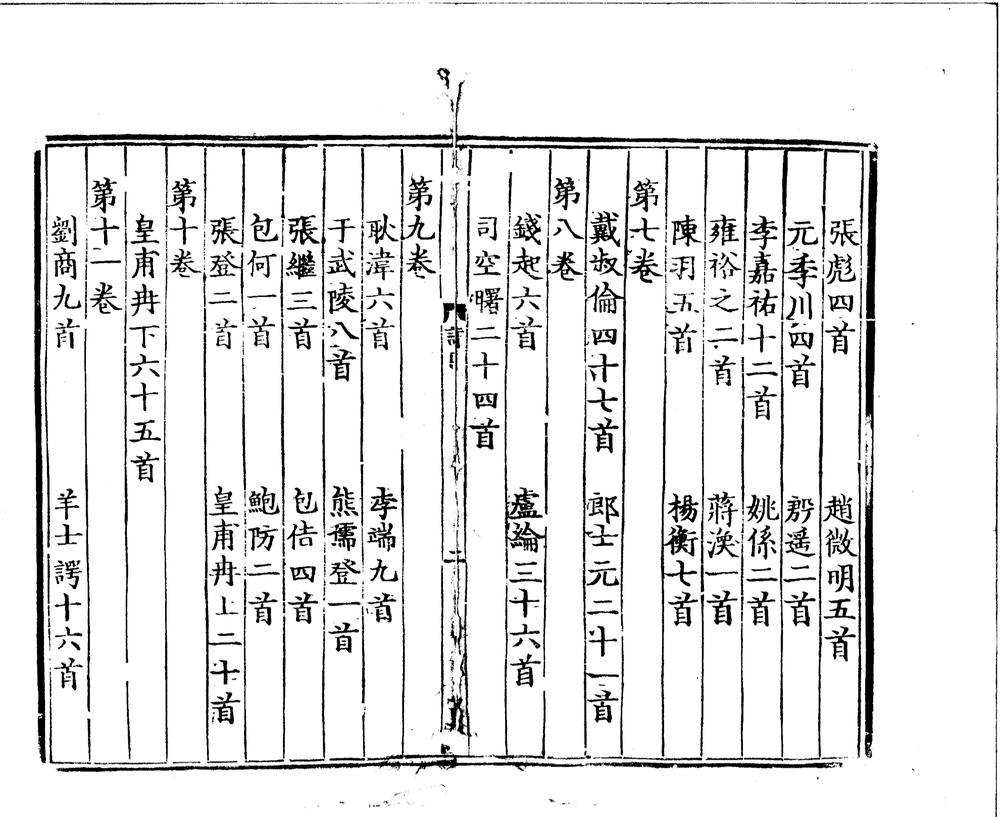 張彪四首 趙微明五首
元季川四首 郡遥二首
李嘉祐十二首 姚係二首
雍裕之二首 蔣渙一首
陳羽五首 楊衡七首
第七卷
戴叔倫四十七首 郎士元二十一首
第八卷
錢起六首 盧綸三十六首
司空曙二十四首
二
第九卷
耿湋六首 李端九首
于武陵八首 熊孺登一首
張繼三首 包佶四首
包何一首 鮑防二首
張登二首 皇甫冉上二十首
第十卷
皇甫冉下六十五首
第十一卷
劉商九首 羊士諤十六首